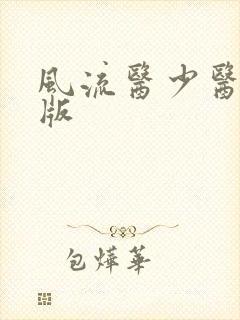 風流醫少醫
版
包燁華